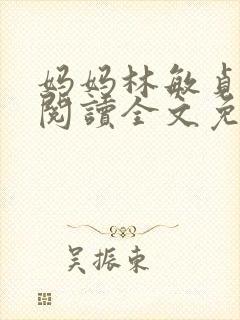 妈妈林敏貞
閱讀全文免
吴振東